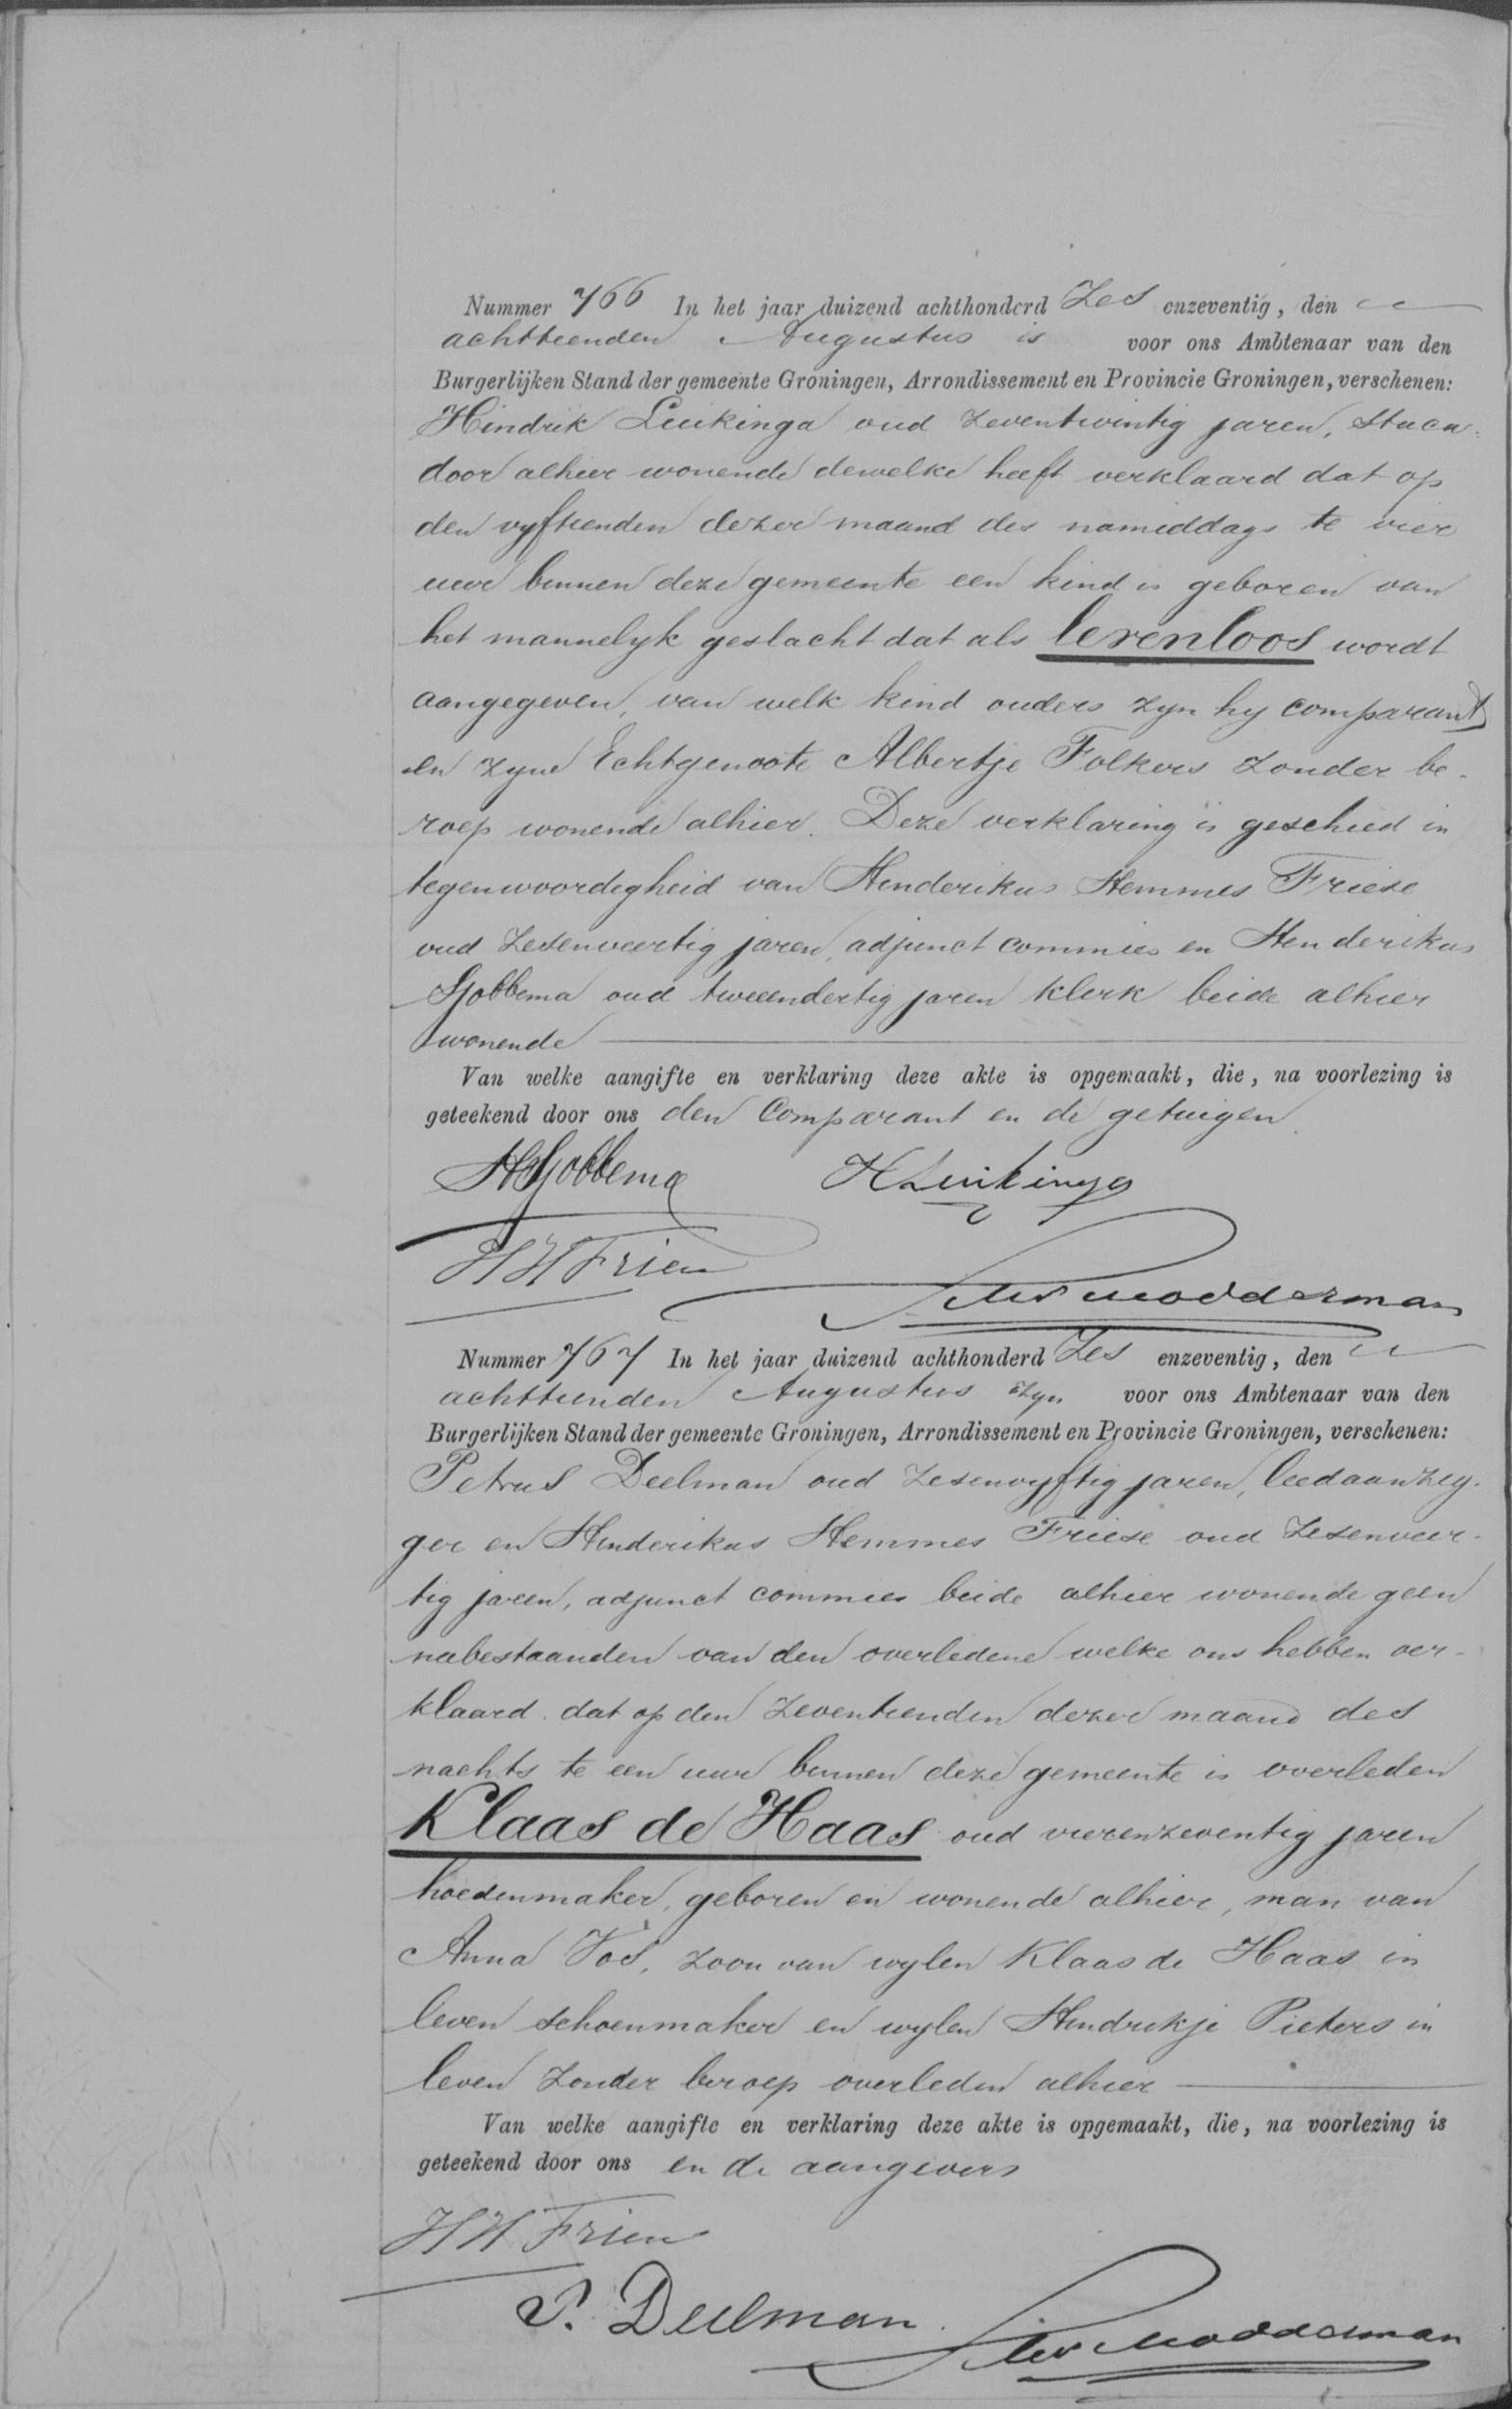 Nummer 766 In het jaar duizend achthonderd Zes enzeventig, den
achttienden Augustus is voor ons Ambtenaar van den
Burgerlijken Stand der gemeente Groningen, Arrondissement en Provincie Groningen, verschenen:
Hindrik Luikinga oud Zeventwintig jaren, Stuca-
door alhier wonende dewelke heeft verklaard dat op
den vyftienden dezer maand des namiddags te vier
uur binnen deze gemeente een kind is geboren van
het mannelyk geslacht dat als levenloos wordt
aangegeven, van welk kind ouders zyn hy comparant
en zyne Echtgenoote Albertje Folkers zonder be-
roep wonende alhier. Deze verklaring is geschied in
tegenwoordigheid van Henderikus Hemmes Friese
oud Zesenveertig jaren, adjunct commies en Henderikus
Sjobbema oud tweeendertig jaren klerk beide alhier
wonende
Van welke aangifte en verklaring deze akte is opgemaakt, die, na voorlezing is
geteekend door ons den Comparant en de getuigen.
HSjobbema HLuikinga
HHFriese
Modderman
Nummer 767 In het jaar duizend achthonderd Zes enzeventig, den
achttienden Augustus zyn voor ons Ambtenaar van den
Burgerlijken Stand der gemeente Groningen, Arrondissement en Provincie Groningen, verschenen:
Petrus Deelman oud Zesenvyftig jaren, leedaanzeg-
ger en Henderikus Hemmes Friese oud Zesenveer-
tig jaren, adjunct commies beide alhier wonende geen
nabestaanden van den overledene welke ons hebben ver-
klaard dat op den Zeventienden dezer maand des
nachts te een uur binnen deze gemeente is overleden
Klaas de Haas oud vierenzeventig jaren
hoedenmaker, geboren en wonende alhier, man van
Anna Vos, zoon van wylen Klaas de Haas in
leven schoenmaker en wylen Hendrikje Pieters in
leven zonder beroep overleden alhier
Van welke aangifte en verklaring deze akte is opgemaakt, die, na voorlezing is
geteekend door ons en de aangevers
HHFriese
P. Deelman.
Modderman